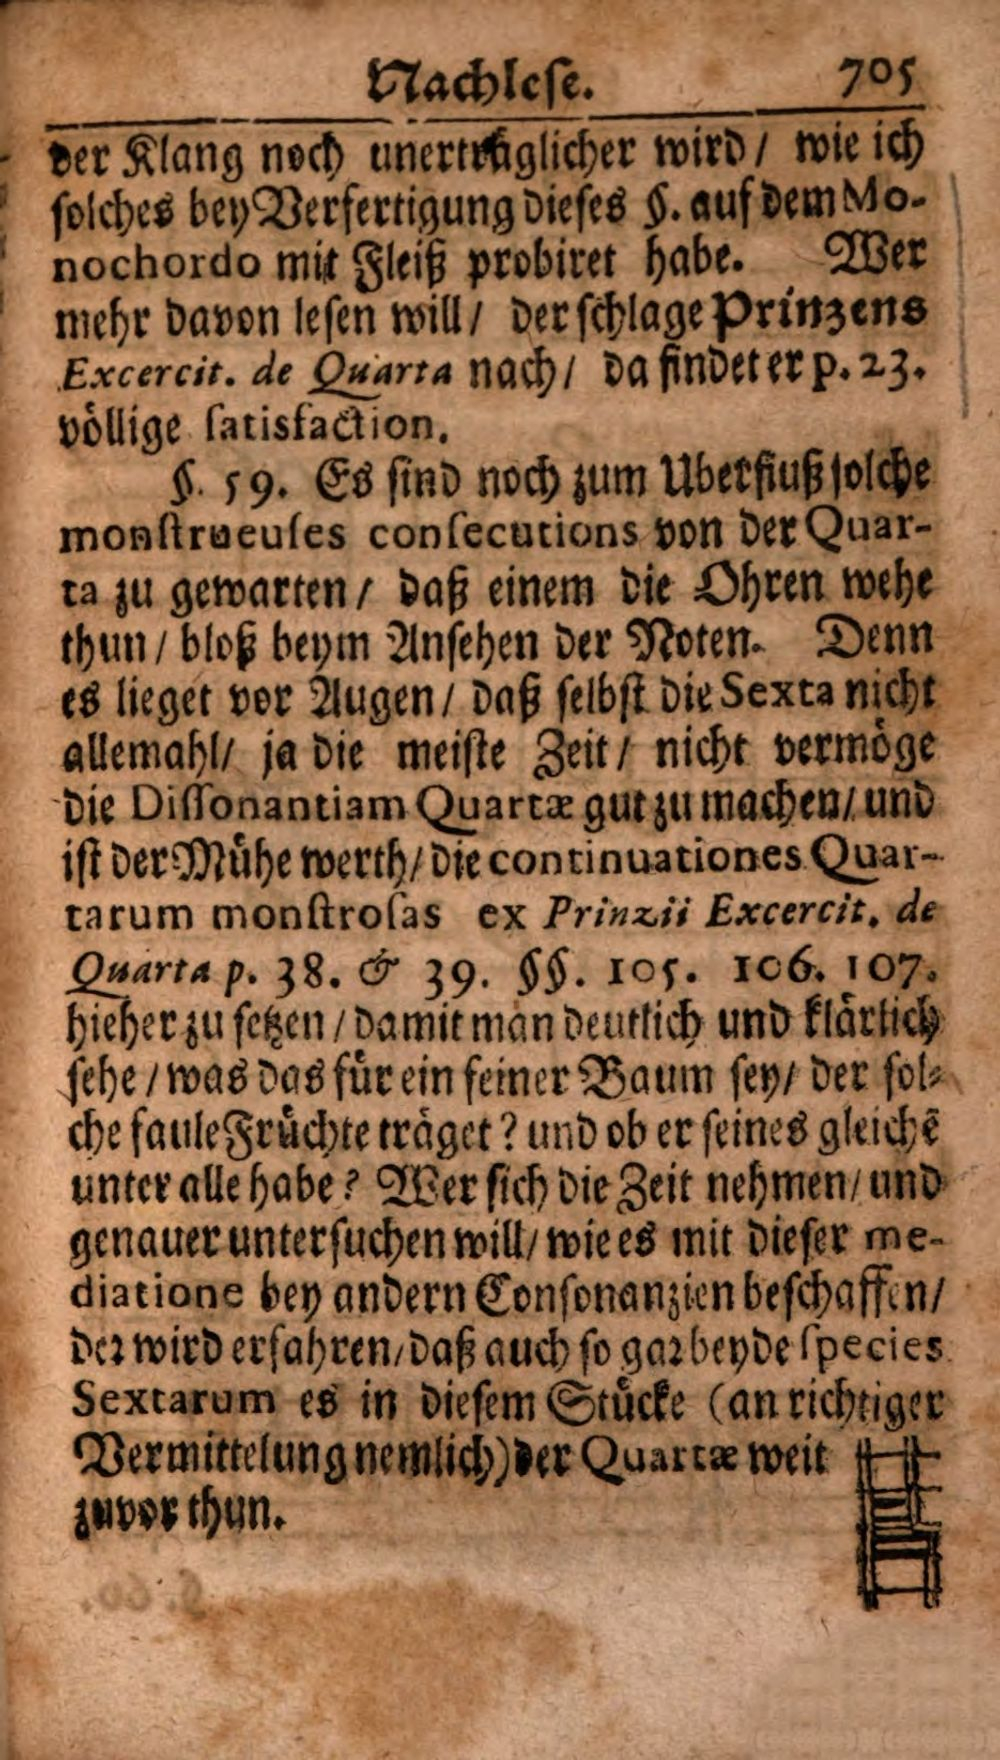 Nachlese. 705
der Klang noch unerträglicher wird / wie ich
solches bey Verfertigung dieses §. auf dem Mo-
nochordo mit Fleiß probiret habe. Wer
mehr davon lesen will / der schlage Prinzens
Excercit. de Quarta nach / da findet er p. 23.
völlige satisfaction.
§. 59. Es sind noch zum Uberfluß solche
monstrueuses consecutions von der Quar-
ta zu gewarten / daß einem die Ohren wehe
thun / bloß beym Ansehen der Noten. Denn
es lieget vor Augen / daß selbst die Sexta nicht
allemahl / ja die meiste Zeit / nicht vermöge
die Dissonantiam Quartæ gut zu machen / und
ist der Mühe werth / die continuationes Quar-
tarum monstrosas ex Prinzii Excercit. de
Quarta p. 38. & 39. §§. 105. 106. 107.
hieher zu setzen / damit man deutlich und klärlich
sehe / was das für ein feiner Baum sey / der sol-
che faule Früchte träget? und ob er seines gleichē
unter alle habe? Wer sich die Zeit nehmen / und
genauer untersuchen will / wie es mit dieser me-
diatione bey andern Consonanzien beschaffen /
der wird erfahren / daß auch so gar beyde species
Sextarum es in diesem Stücke (an richtiger
Vermittelung nemlich) der Quartæ weit
zuvor thun.